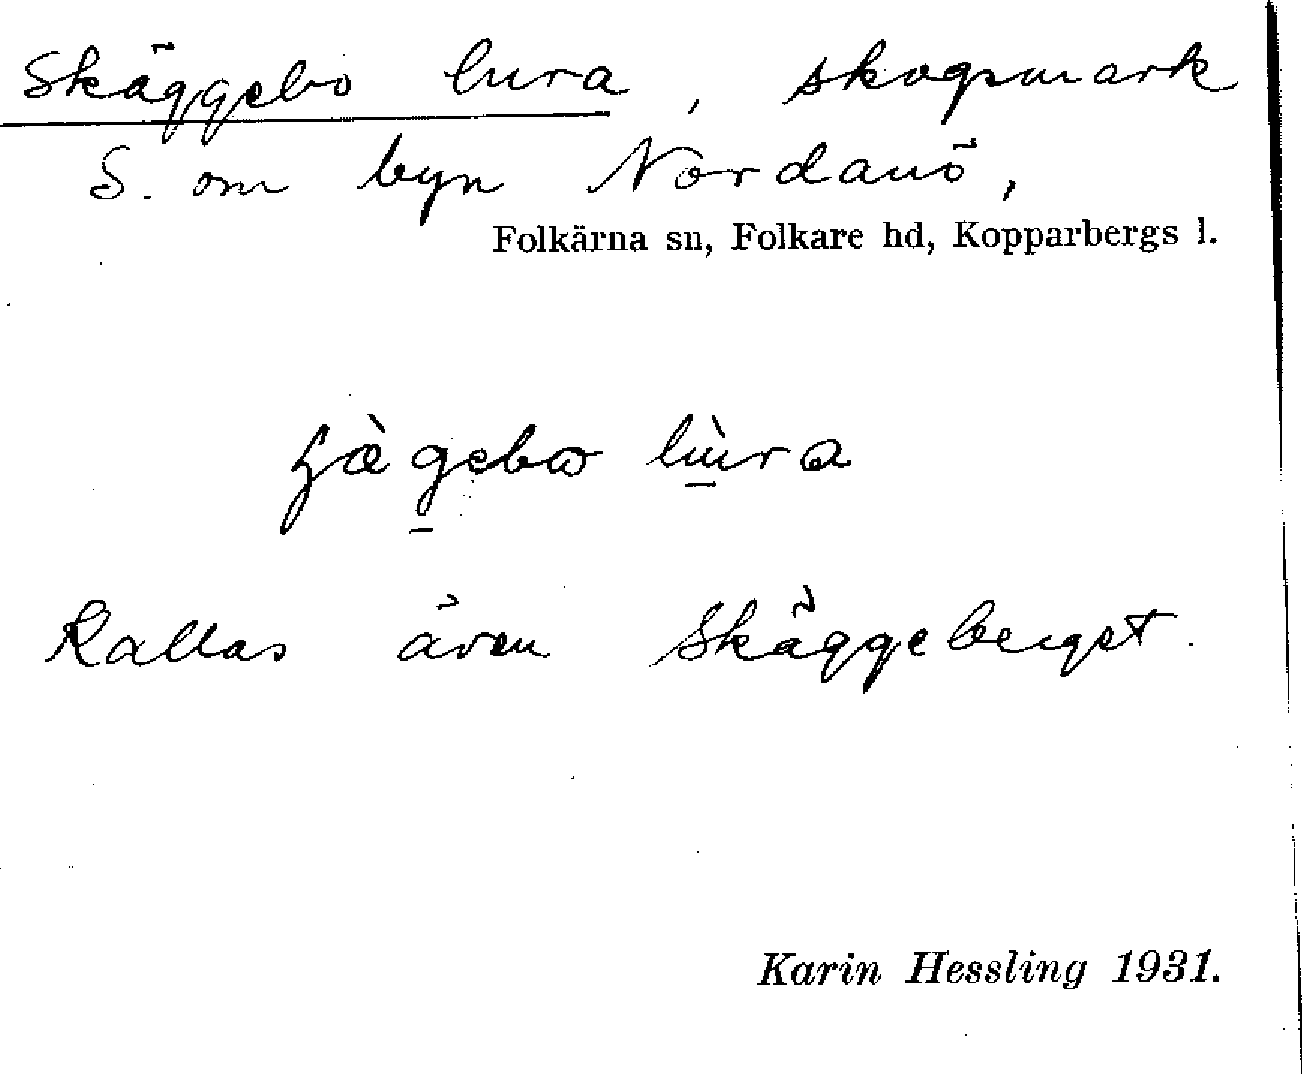 Skäggebo lura, skogsmark
S. om byn Nordanö,
Folkärna sn, Folkare hd, Kopparbergs l.
Kallas även Skäggeberget.
Karin Hessling 1931.